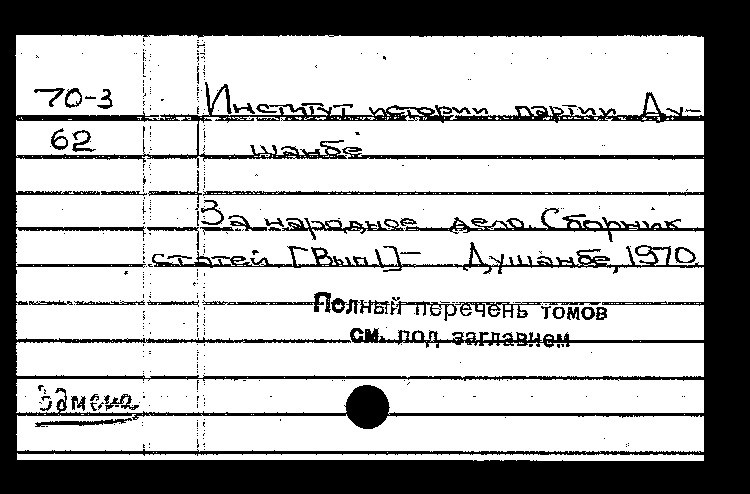 70-3 Институт истории партии Ду-
62 шанбе
За народное дело. Сборник
статей [Вып 1]— Душанбе, 1970
Полный перечень томов
см. под заглавием
Замена